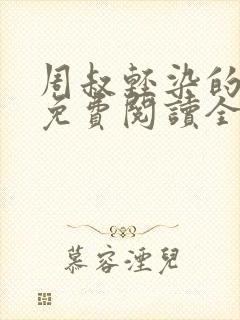 周叔輕染的
免費閱讀全
慕容湮兒